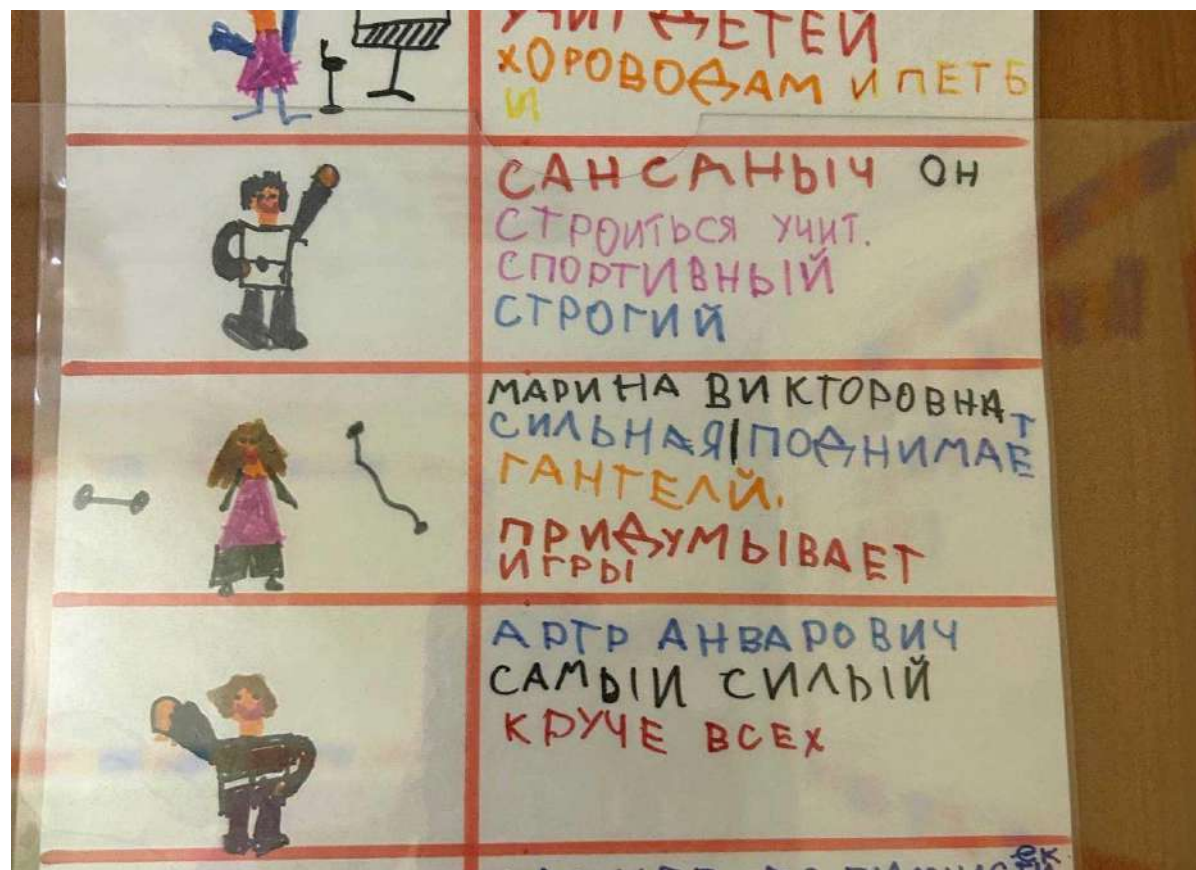 УЧИТ ДЕТЕЙ
ХОРОВОДАМ И ПЕТЬ
И
САН САНЫЧ ОН
СТРОИТЬСЯ УЧИТ.
СПОРТИВНЫЙ
СТРОГИЙ
МАРИНА ВИКТОРОВНА
СИЛЬНАЯ|ПОДНИМАЕТ
ГАНТЕЛЙ.
ПРИДУМЫВАЕТ
ИГРЫ
АРТР АНВАРОВИЧ
САМЫИ СИЛЫЙ
КРУЧЕ ВСЕХ